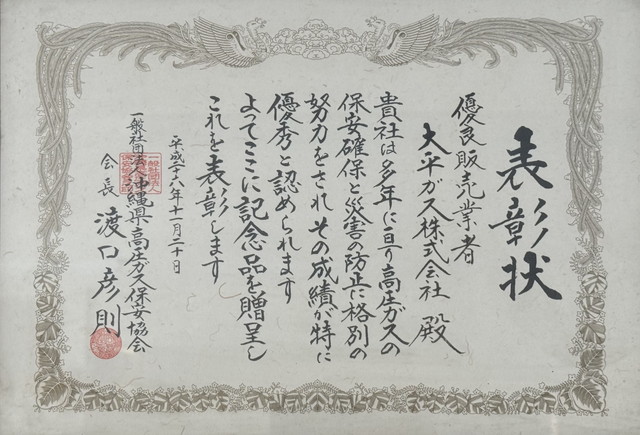 表彰状
優良販売業者
大平ガス株式会社 殿
貴社は多年に亘り高圧ガスの
保安確保と災害の防止に格別の
努力をされその成績が特に
優秀と認められます
よってここに記念品を贈呈し
これを表彰します
平成二十八年十一月二十日
一般社団法人沖縄県高圧ガス保安協会
会長 渡口彦則